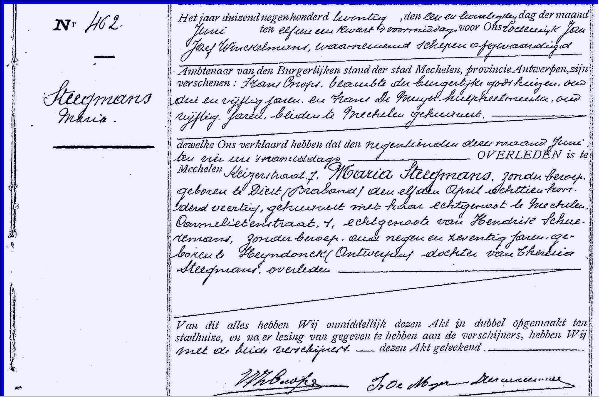 Nr 462.
Steegmans
Maria.
Het jaar duizend negenhonderd twintig, den een en twintigsten dag der maand
Juni ten elf ure een kwart voormiddag, voor Ons Lodewijk Jan
Jozef Winckelmans, waarnemend schepen afgevaardigd
Ambtenaar van den Burgerlijken stand der stad Mechelen, provincie Antwerpen, zijn
verschenen: Frans Cnops, beambte der burgerlijke godshuizen, oud
drie en vijftig jaren en Frans De Muyer hulpkosteleer, oud
vijftig jaren, beiden te Mechelen gehuisd.
dewelke Ons verklaard hebben dat den negentienden dezer maand Juni
ten vier ure namiddags OVERLEDEN is te
Mechelen Keizerstraat, 7. Maria Steegmans, zonder beroep,
geboren te Diest (Braband) den elfden April achttien hon-
derd veertig, gehuisvest met haar echtgenoot te Mechelen
straat, 1, echtgenoote van Hendrik
zonder beroep, oud negen en zeventig jaren, ge-
boren te Heyndonck (Antwerpen) dochter van Theresia
Steegmans, overleden
Van dit alles hebben Wij onmiddellijk dezen Akt in dubbel opgemaakt ten
stadhuize, en na er lezing van gegeven te hebben aan de verschijners, hebben Wij
met de beide verschijners dezen Akt geteekend